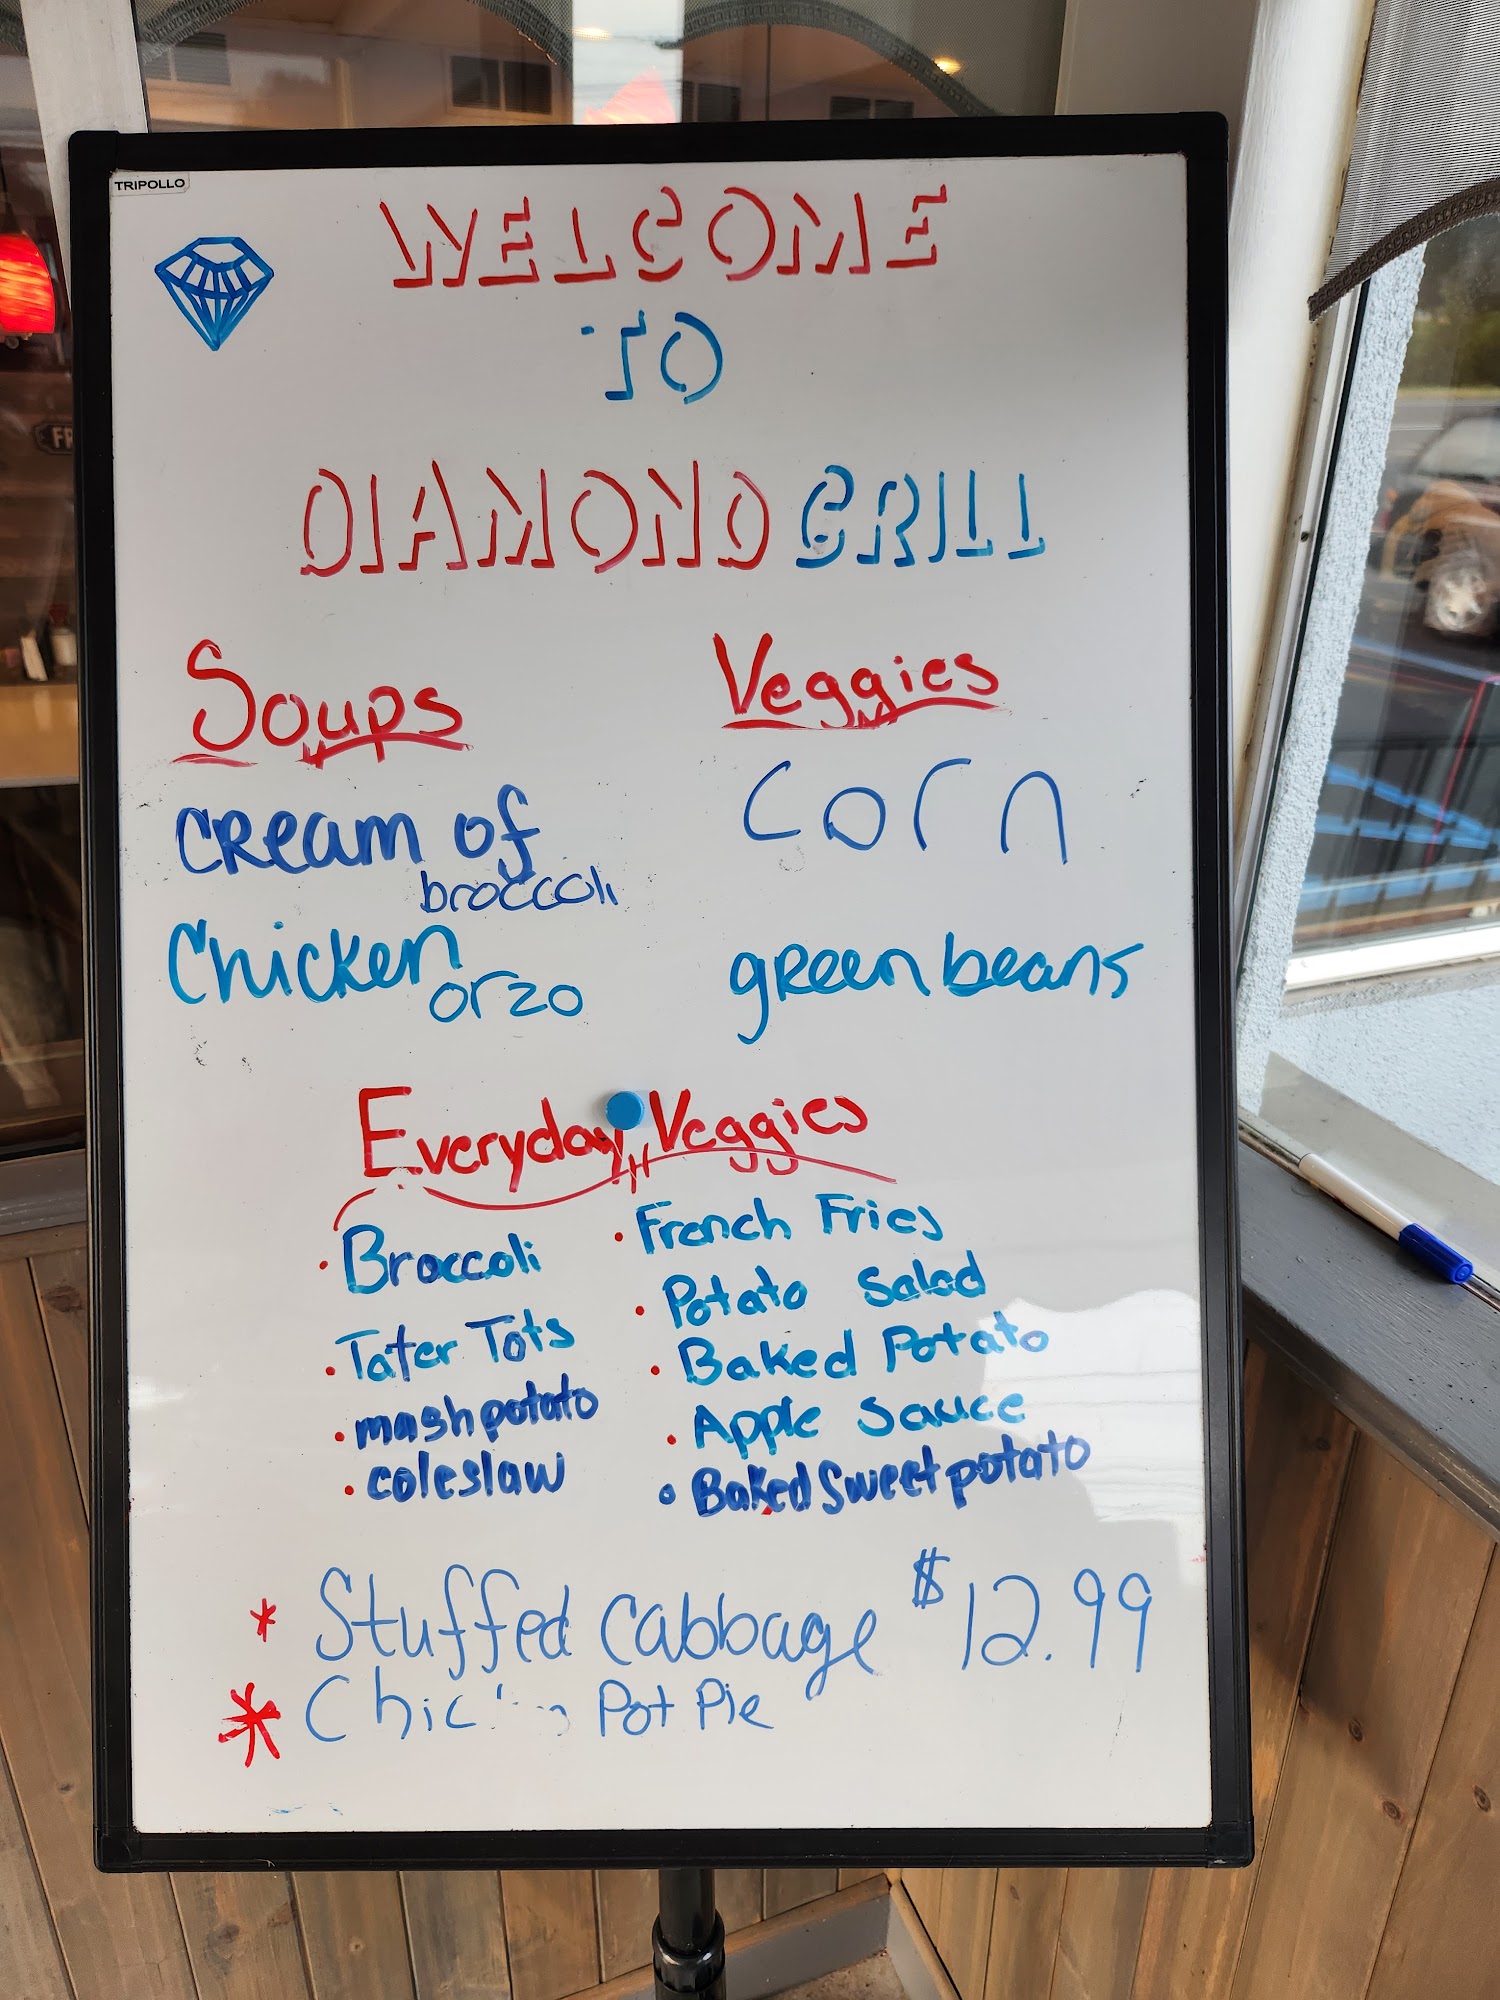 TRIPOLLO
WELCOME
TO
DIAMOND GRILL
Soups
cream of
broccoli
Chicken
orzo
Veggies
corn
green beans
Everyday Veggies
• Broccoli
• Tater Tots
• mash potato
• coleslaw
• French Fries
• Potato Salad
• Baked Potato
• Apple Sauce
• Baked Sweet potato
* Stuffed Cabbage $12.99
* Chicken Pot Pie